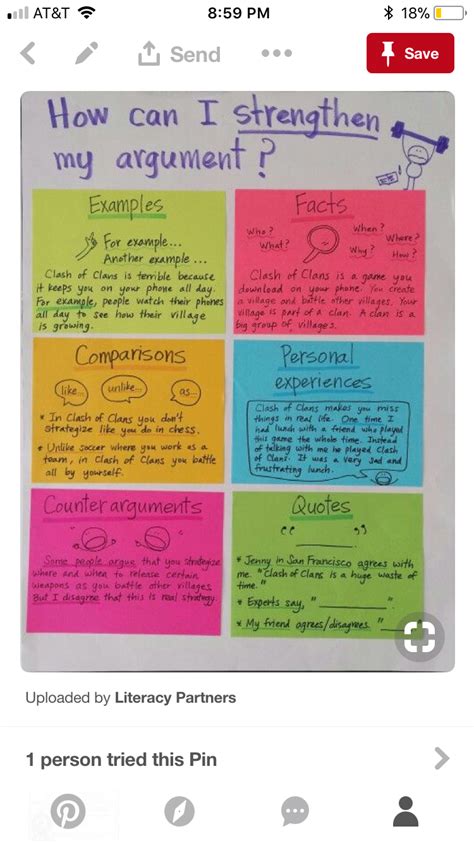 AT&T
8:59 PM
18%
Send
Save
How can I strengthen
my argument?
Examples
For example...
Another example...
Clash of Clans is terrible because
it keeps you on your phone all day.
For example, people watch their phones
all day to see how their village
is growing.
Facts
Who?
What?
When?
Where?
Why?
How?
Clash of Clans is a game you
download on your phone. You create
a village and battle other villages. Your
village is part of a clan. A clan is a
big group of villages.
Comparisons
like...
unlike...
as...
* In Clash of Clans you don't
strategize like you do in chess.
* Unlike soccer where you work as a
team, in Clash of Clans you battle
all by yourself.
Personal
experiences
Clash of Clans makes you miss
things in real life. One time I
had lunch with a friend who played
this game the whole time. Instead
of talking with me he played Clash
of Clans. It was a very sad and
frustrating lunch.
Counter arguments
Some people argue that you strategize
where and when to release certain
weapons as you battle other villages.
But I disagree that this is real strategy.
Quotes
" "
* Jenny in San Francisco agrees with
me. "Clash of Clans is a huge waste of
time."
* Experts say, "__________"
* My friend agrees/disagrees. "____
Uploaded by Literacy Partners
1 person tried this Pin